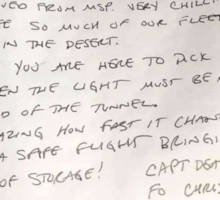 VED FROM MSP. VERY CHILLI
EE SO MUCH OF OUR FLEET
IN THE DESERT.
YOU ARE HERE TO PICK
EN THE LIGHT MUST BE A
D OF THE TUNNEL.
AZING HOW FAST IT CHAN
A SAFE FLIGHT BRINGI
OF STORAGE!
CAPT
FO CHRIS